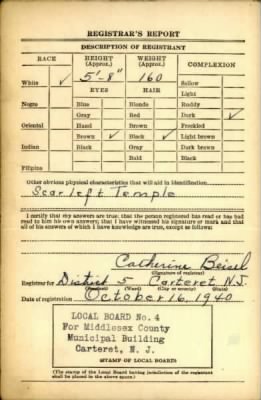 REGISTRAR'S REPORT
DESCRIPTION OF REGISTRANT
RACE HEIGHT (Approx.) WEIGHT (Approx.) COMPLEXION
White ✓ 5'-8" 160 Sallow
EYES HAIR Light
Negro Blue Blonde Ruddy
Gray Red Dark ✓
Oriental Hazel Brown Freckled
Brown ✓ Black ✓ Light brown
Indian Black Gray Dark brown
Bald Black
Filipino
Other obvious physical characteristics that will aid in identification
Scar left Temple
I certify that my answers are true; that the person registered has read or has had
read to him his own answers; that I have witnessed his signature or mark and that
all of his answers of which I have knowledge are true, except as follows:
Catherine Beisel
(Signature of registrar)
Registrar for District 5 Carteret N.J.
(Precinct) (Ward) (City or county) (State)
Date of registration October 16, 1940
LOCAL BOARD No. 4
For Middlesex County
Municipal Building
Carteret, N. J.
(STAMP OF LOCAL BOARD)
(The stamp of the Local Board having jurisdiction of the registrant
shall be placed in the above space.)